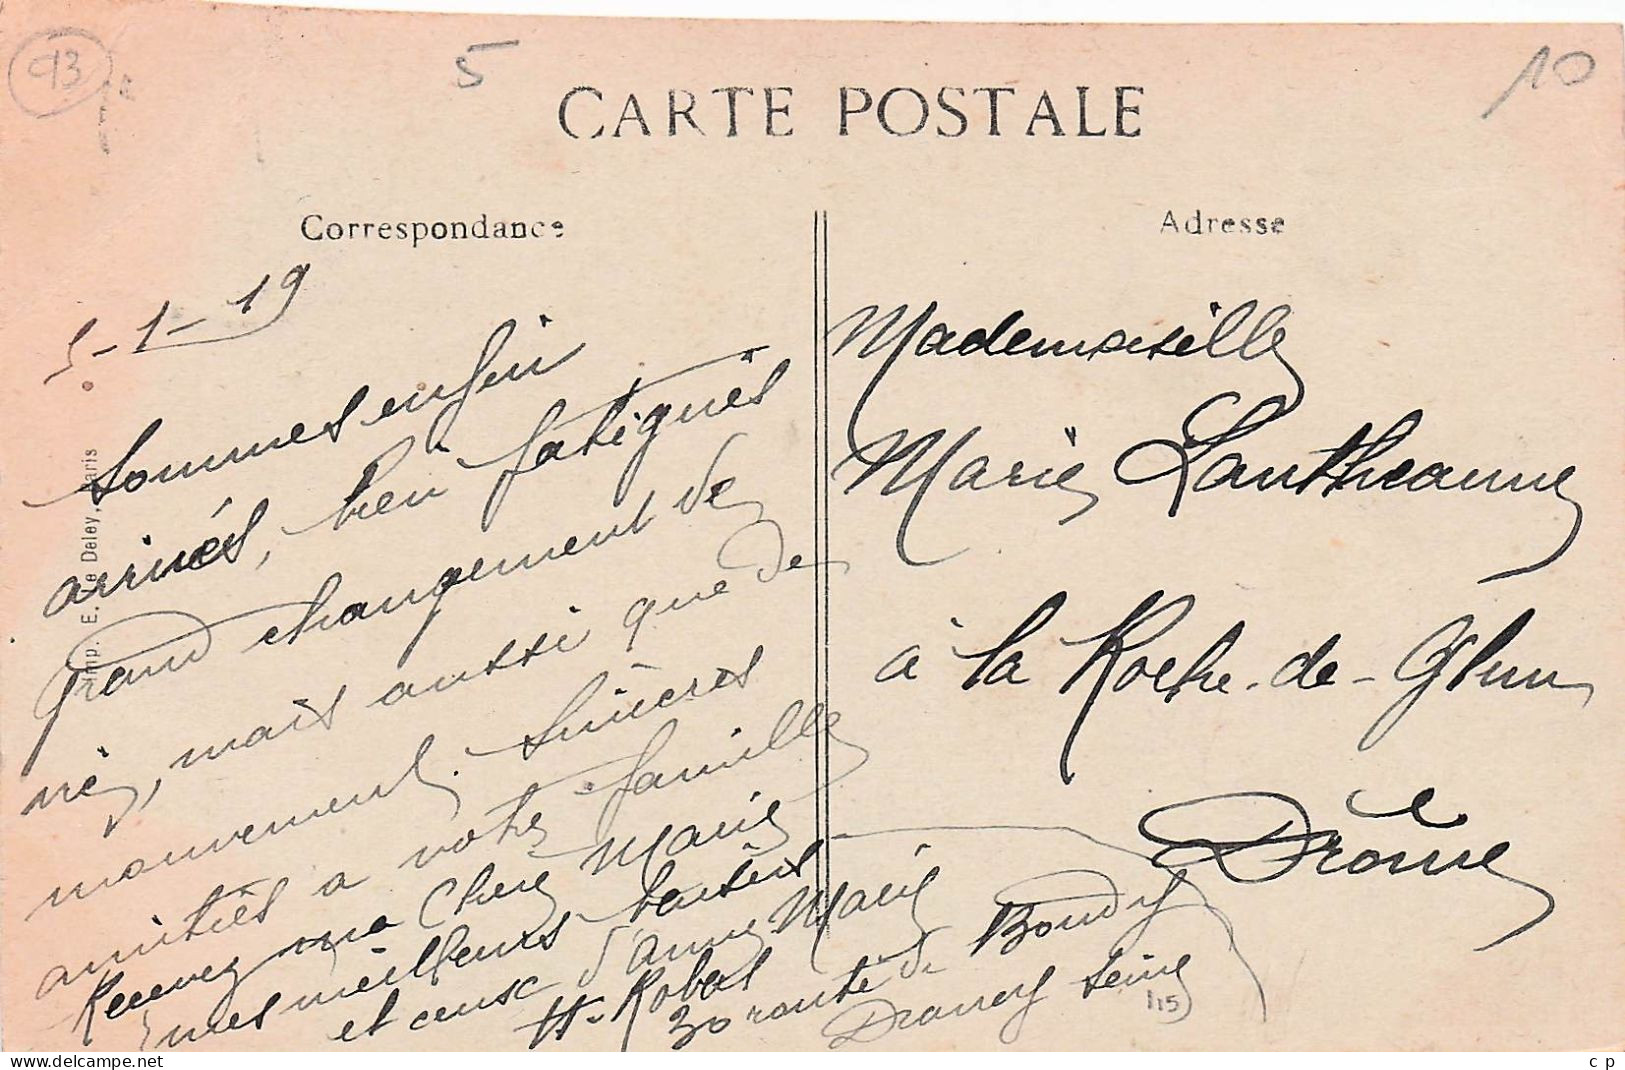 93
5
10
CARTE POSTALE
Correspondance
Adresse
5-1-19
Sommes enfin
arrivés, bien fatigués
grand changement de
vie, mais aussi que de
mouvement. Sincères
amitiés a votre famille
Recevez ma Chère Marie
mes meilleurs baisers
et ceux d'Anne Marie
H. Robert
30 route de Bondy
Drancy Seine
115
Mademoiselle
Marie Lantheaume
à la Roche-de-Glun
Drôme
Imp. E. Le Deley, Paris
c p